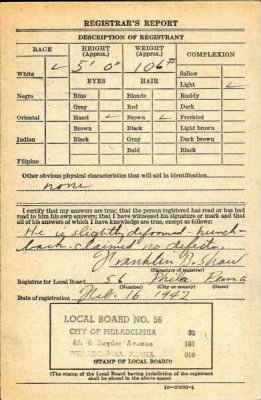 REGISTRAR'S REPORT
DESCRIPTION OF REGISTRANT
RACE HEIGHT (Approx.) WEIGHT (Approx.) COMPLEXION
White 5' 0" 106# Sallow
EYES HAIR Light
Negro Blue Blonde Ruddy
Gray Red Dark
Oriental Hazel Brown Freckled
Brown Black Light brown
Indian Black Gray Dark brown
Bald Black
Filipino
Other obvious physical characteristics that will aid in identification
none
I certify that my answers are true; that the person registered has read or has had
read to him his own answers; that I have witnessed his signature or mark and that
all of his answers of which I have knowledge are true, except as follows:
He is slightly deformed hunch-
back claimed no defects.
Franklin B. Shaw
(Signature of registrar)
Registrar for Local Board 56 Phila Penna
(Number) (City or county) (State)
Date of registration Feb. 16 1942
LOCAL BOARD NO. 56
CITY OF PHILADELPHIA 31
Snyder Avenue 101
PHILADELPHIA, PENNA 056
(STAMP OF LOCAL BOARD)
(The stamp of the Local Board having jurisdiction of the registrant
shall be placed in the above space.)